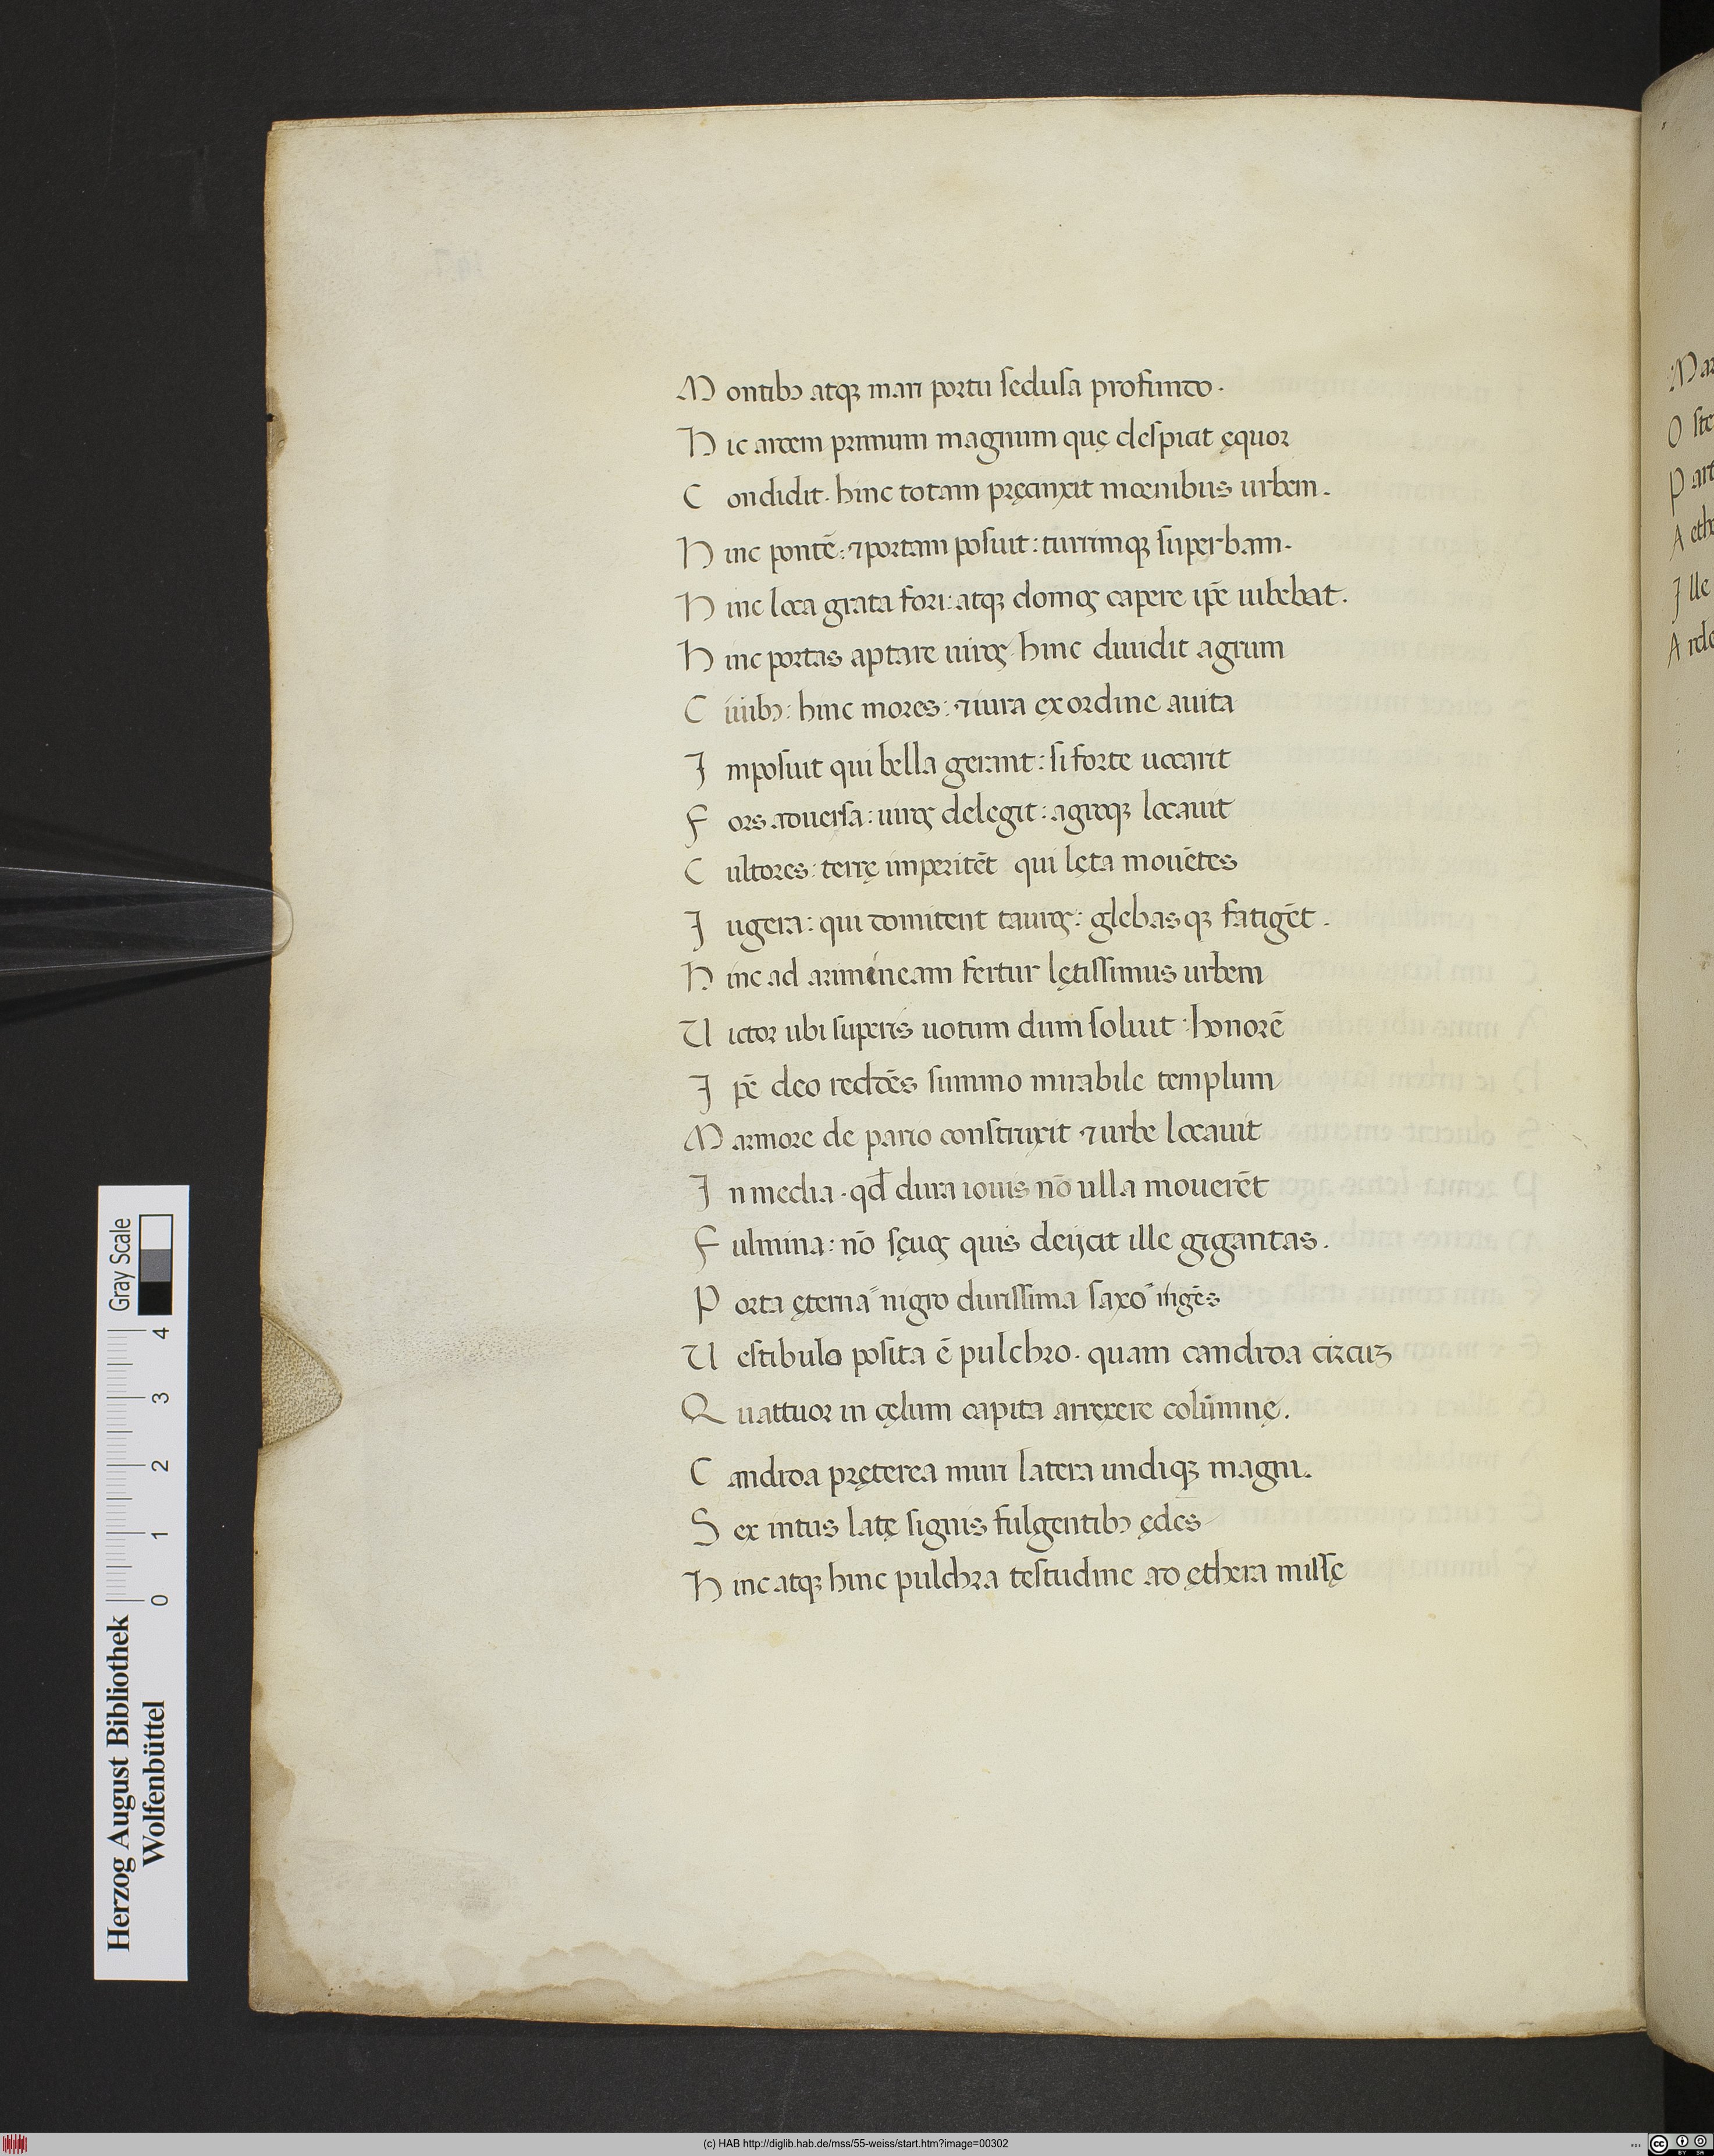 M ontibꝫ atqꝫ mari portu seclusa profundo.
H ic arcem primum magnum quę despicit ęquor
C ondidit. hinc totam pręcinxit moenibus urbem.
H inc pontē: ⁊ portam posuit: turrimqꝫ superbam.
H inc loca grata fori: atqꝫ domos capere ip̄e iubebat.
H inc portas aptare uiros. hinc diuidit agrum
C iuibꝫ: hinc mores: ⁊ iura ex ordine auita
I mposuit qui bella gerant: si forte uocarit
F ors aduersa: uiros delegit: agroqꝫ locauit
C ultores: terrę imperitēt qui lęta mouētes
I ugera: qui domitent tauros: glebasqꝫ fatigēt.
H inc ad arimineam fertur lętissimus urbem
U ictor ubi superis uotum dum soluit: honorē
I p̄e deo reddēs summo mirabile templum
M armore de pario construxit ⁊ urbe locauit
I n media. qđ dura iouis nō ulla mouerēt
F ulmina: nō sęuos quis deijcit ille gigantas.
P orta ęterna nigro durissima saxo ingēs
U estibulo posita ē pulchro. quam candida circuꝫ
Q uattuor in cęlum capita arrexere colūmnę.
C andida pręterea muri latera undiqꝫ magni.
S ex intus latę signis fulgentibꝫ ędes
H inc atqꝫ hinc pulchra testudine ad ęthera missę
M
O ste
P art
A eth
I lle
A rde
Herzog August Bibliothek
Wolfenbüttel
0 1 2 3 4
Gray Scale
(c) HAB http://diglib.hab.de/mss/55-weiss/start.htm?image=00302
cc
BY SA